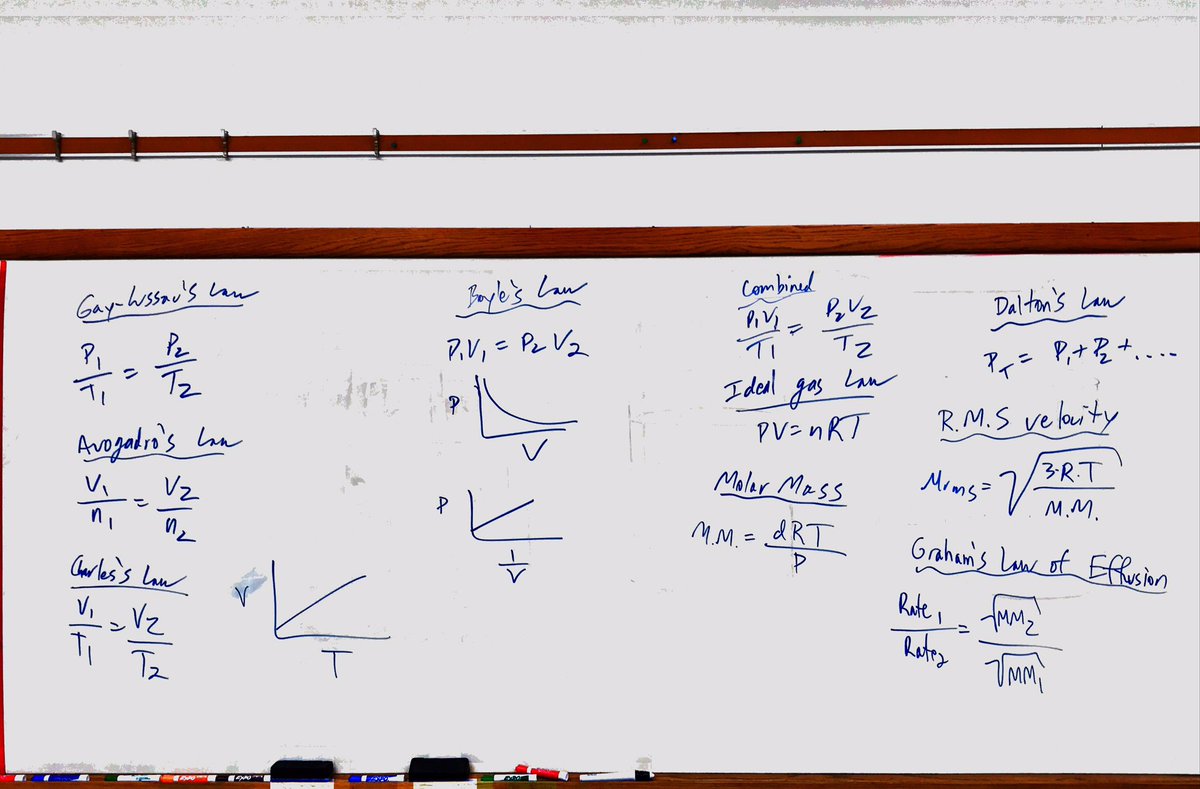 Gay-Lussac's Law
P₁/T₁ = P₂/T₂
Avogadro's Law
V₁/n₁ = V₂/n₂
Charles's Law
V₁/T₁ = V₂/T₂
V
T
Boyle's Law
P₁V₁ = P₂V₂
P
V
P
1/V
Combined
P₁V₁/T₁ = P₂V₂/T₂
Ideal gas Law
PV = nRT
Molar Mass
M.M. = dRT/P
Dalton's Law
P_T = P₁ + P₂ + ....
R.M.S velocity
Mrms = √(3·R·T/M.M.)
Graham's Law of Effusion
Rate₁/Rate₂ = √MM₂/√MM₁
EXPO
EXPO
EXPO
EXPO